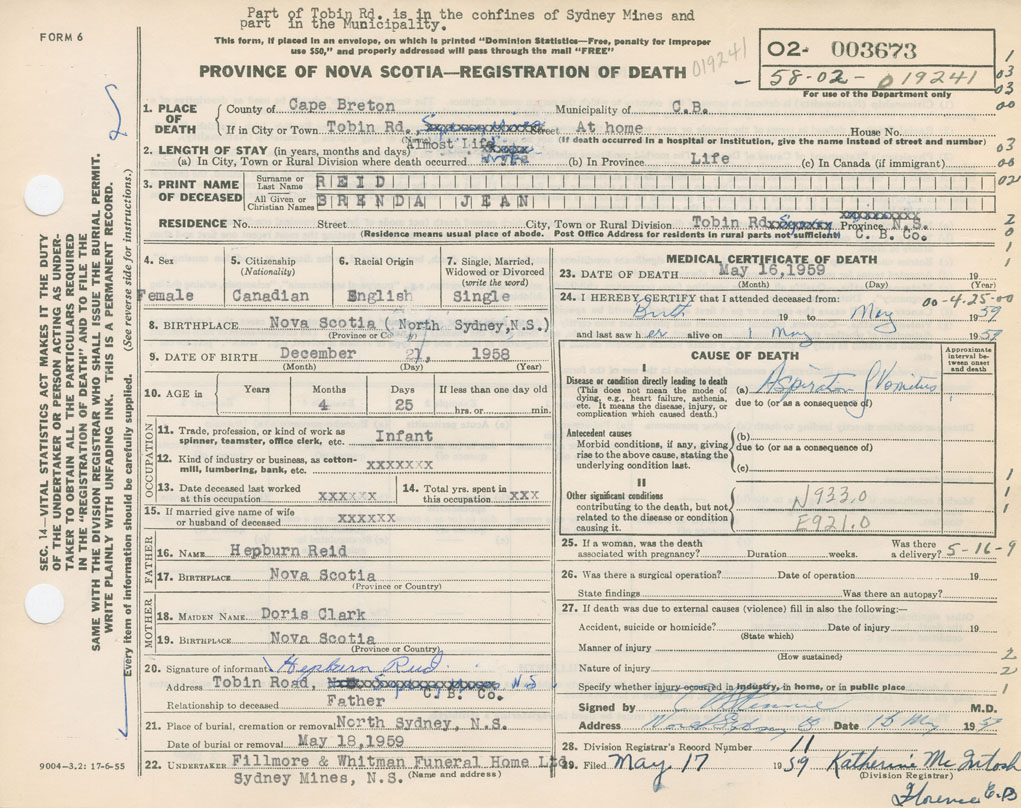 Part of Tobin Rd. is in the confines of Sydney Mines and
part in the Municipality.
FORM 6
This form, if placed in an envelope, on which is printed "Dominion Statistics—Free, penalty for improper
use $50," and properly addressed will pass through the mail "FREE"
019241
02- 003673
58-02- 019241
For use of the Department only
PROVINCE OF NOVA SCOTIA—REGISTRATION OF DEATH
1. PLACE OF DEATH
County of Cape Breton Municipality of C.B.
If in City or Town Tobin Rd., Street At home House No.
(If death occurred in a hospital or institution, give the name instead of street and number)
2. LENGTH OF STAY (in years, months and days) Almost Life
(a) In City, Town or Rural Division where death occurred (b) In Province Life (c) In Canada (if immigrant)
3. PRINT NAME OF DECEASED
Surname or Last Name REID
All Given or Christian Names BRENDA JEAN
RESIDENCE No. Street City, Town or Rural Division Tobin Rd Province N.S.
(Residence means usual place of abode. Post Office Address for residents in rural parts not sufficient) C. B. Co.
4. Sex Female
5. Citizenship (Nationality) Canadian
6. Racial Origin English
7. Single, Married, Widowed or Divorced (write the word) Single
8. BIRTHPLACE Nova Scotia (North Sydney,N.S.)
(Province or Country)
9. DATE OF BIRTH December 21, 1958
(Month) (Day) (Year)
10. AGE in Years Months 4 Days 25 If less than one day old hrs. or min.
OCCUPATION
11. Trade, profession, or kind of work as spinner, teamster, office clerk, etc. Infant
12. Kind of industry or business, as cotton-mill, lumbering, bank, etc. xxxxxxx
13. Date deceased last worked at this occupation xxxxxx
14. Total yrs. spent in this occupation xxx
15. If married give name of wife or husband of deceased xxxxxx
FATHER
16. NAME Hepburn Reid
17. BIRTHPLACE Nova Scotia
(Province or Country)
MOTHER
18. MAIDEN NAME Doris Clark
19. BIRTHPLACE Nova Scotia
(Province or Country)
20. Signature of informant Hepburn Reid
Address Tobin Road, N S
C. B. Co.
Relationship to deceased Father
21. Place of burial, cremation or removal North Sydney, N.S.
Date of burial or removal May 18,1959
22. UNDERTAKER Fillmore & Whitman Funeral Home Ltd.
Sydney Mines, N.S. (Name and address)
9004—3.2: 17-6-55
MEDICAL CERTIFICATE OF DEATH
23. DATE OF DEATH May 16,1959 19
(Month) (Day) (Year)
24. I HEREBY CERTIFY that I attended deceased from: 00-4-25-00
Birth 19 to May 1959
and last saw h er alive on 1 May 1959
CAUSE OF DEATH
Approximate interval between onset and death
I
Disease or condition directly leading to death
(This does not mean the mode of dying, e.g., heart failure, asthenia, etc. It means the disease, injury, or complication which caused death.)
(a) Aspiration of Vomitus
due to (or as a consequence of)
Antecedent causes
Morbid conditions, if any, giving rise to the above cause, stating the underlying condition last.
(b)
due to (or as a consequence of)
(c)
II
Other significant conditions contributing to the death, but not related to the disease or condition causing it.
N933.0
E921.0
25. If a woman, was the death associated with pregnancy? Duration weeks. Was there a delivery? 5-16-9
26. Was there a surgical operation? Date of operation 19
State findings Was there an autopsy?
27. If death was due to external causes (violence) fill in also the following:—
Accident, suicide or homicide? Date of injury 19
(State which)
Manner of injury
(How sustained)
Nature of injury
Specify whether injury occured in industry, in home, or in public place
Signed by M.D.
Address North Sydney Date 16 May 1959
28. Division Registrar's Record Number 11
29. Filed May 17 1959 Katherine Mc Intosh
(Division Registrar)
Florence C.B
SEC. 14—VITAL STATISTICS ACT MAKES IT THE DUTY
OF THE UNDERTAKER OR PERSON ACTING AS UNDER-
TAKER TO OBTAIN ALL THE PARTICULARS REQUIRED
IN THE "REGISTRATION OF DEATH" AND TO FILE THE
SAME WITH THE DIVISION REGISTRAR WHO SHALL ISSUE THE BURIAL PERMIT.
WRITE PLAINLY WITH UNFADING INK. THIS IS A PERMANENT RECORD.
Every item of information should be carefully supplied. (See reverse side for instructions.)
1
03
03
00
03
00
02
2
0
1
1
1
1
2
2
1